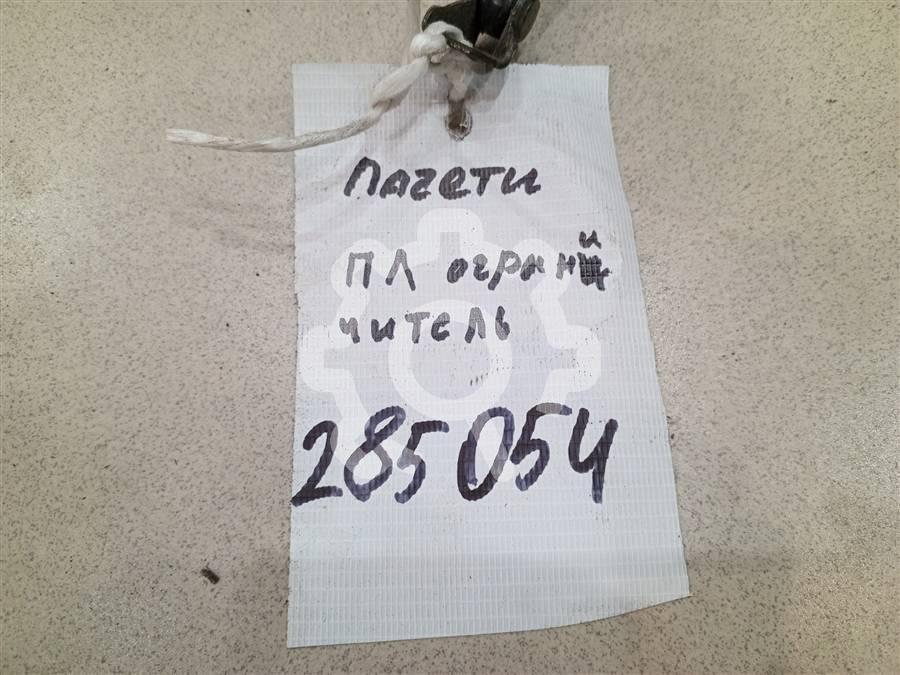 Лачети
ПЛ ограни
читель
285054